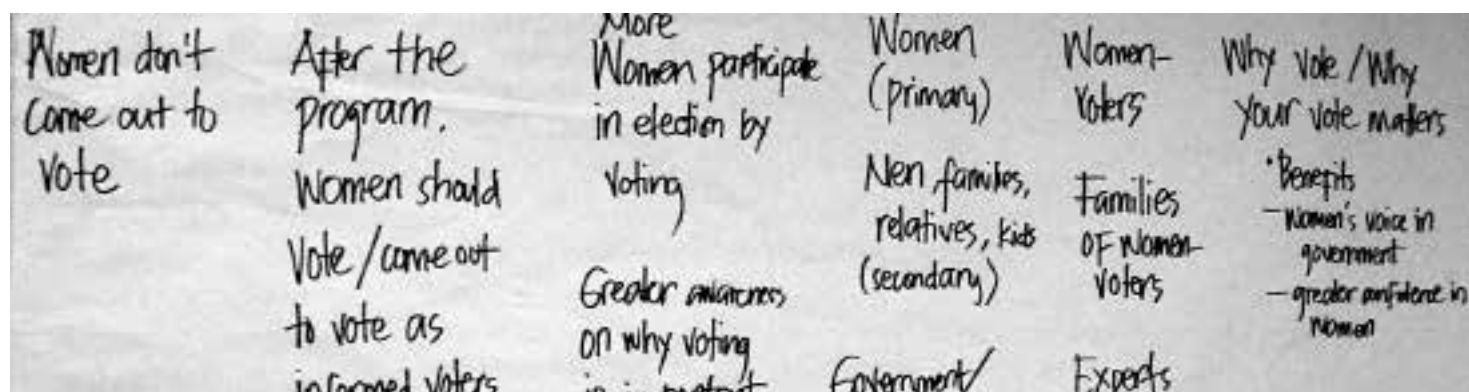 Women don't
come out to
vote
After the
program,
women should
vote/come out
to vote as
informed voters
More
Women participate
in election by
voting
Greater awareness
on why voting
is important
Women
(primary)
Men, families,
relatives, kids
(secondary)
Government/
Women-
voters
Families
of women-
voters
Experts
Why vote / Why
your vote matters
• Benefits
- Women's voice in
government
- greater confidence in
women